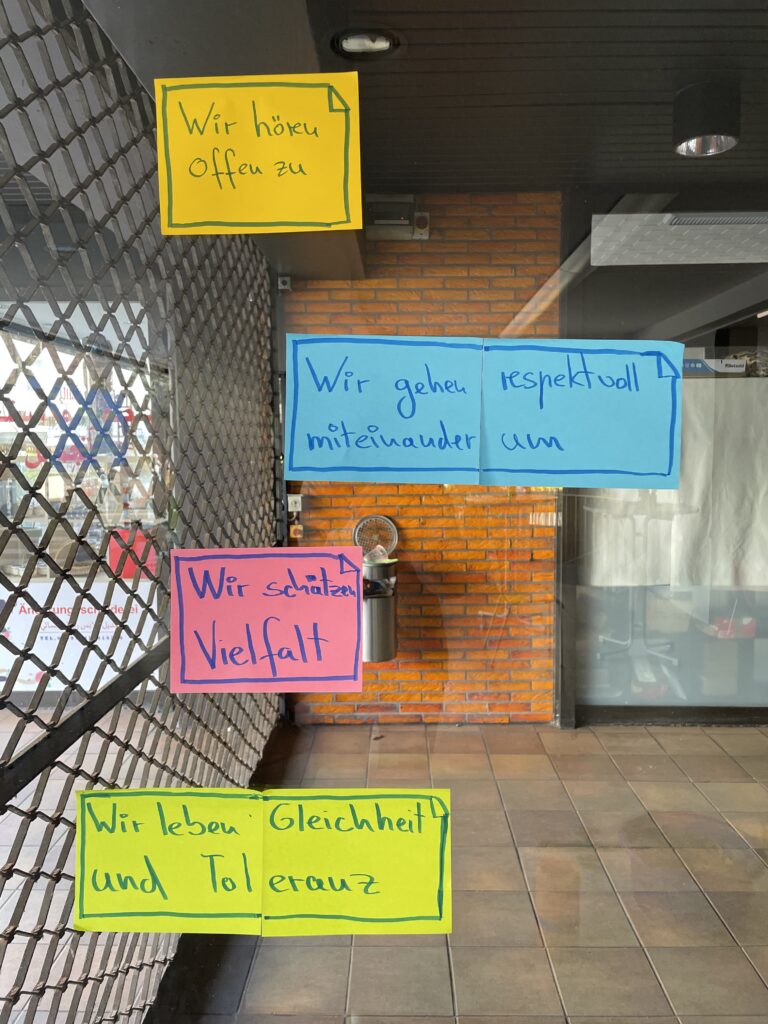 Wir hören
Offen zu
Wir gehen respektvoll
miteinander um
Wir schätzen
Vielfalt
Wir leben Gleichheit
und Toleranz